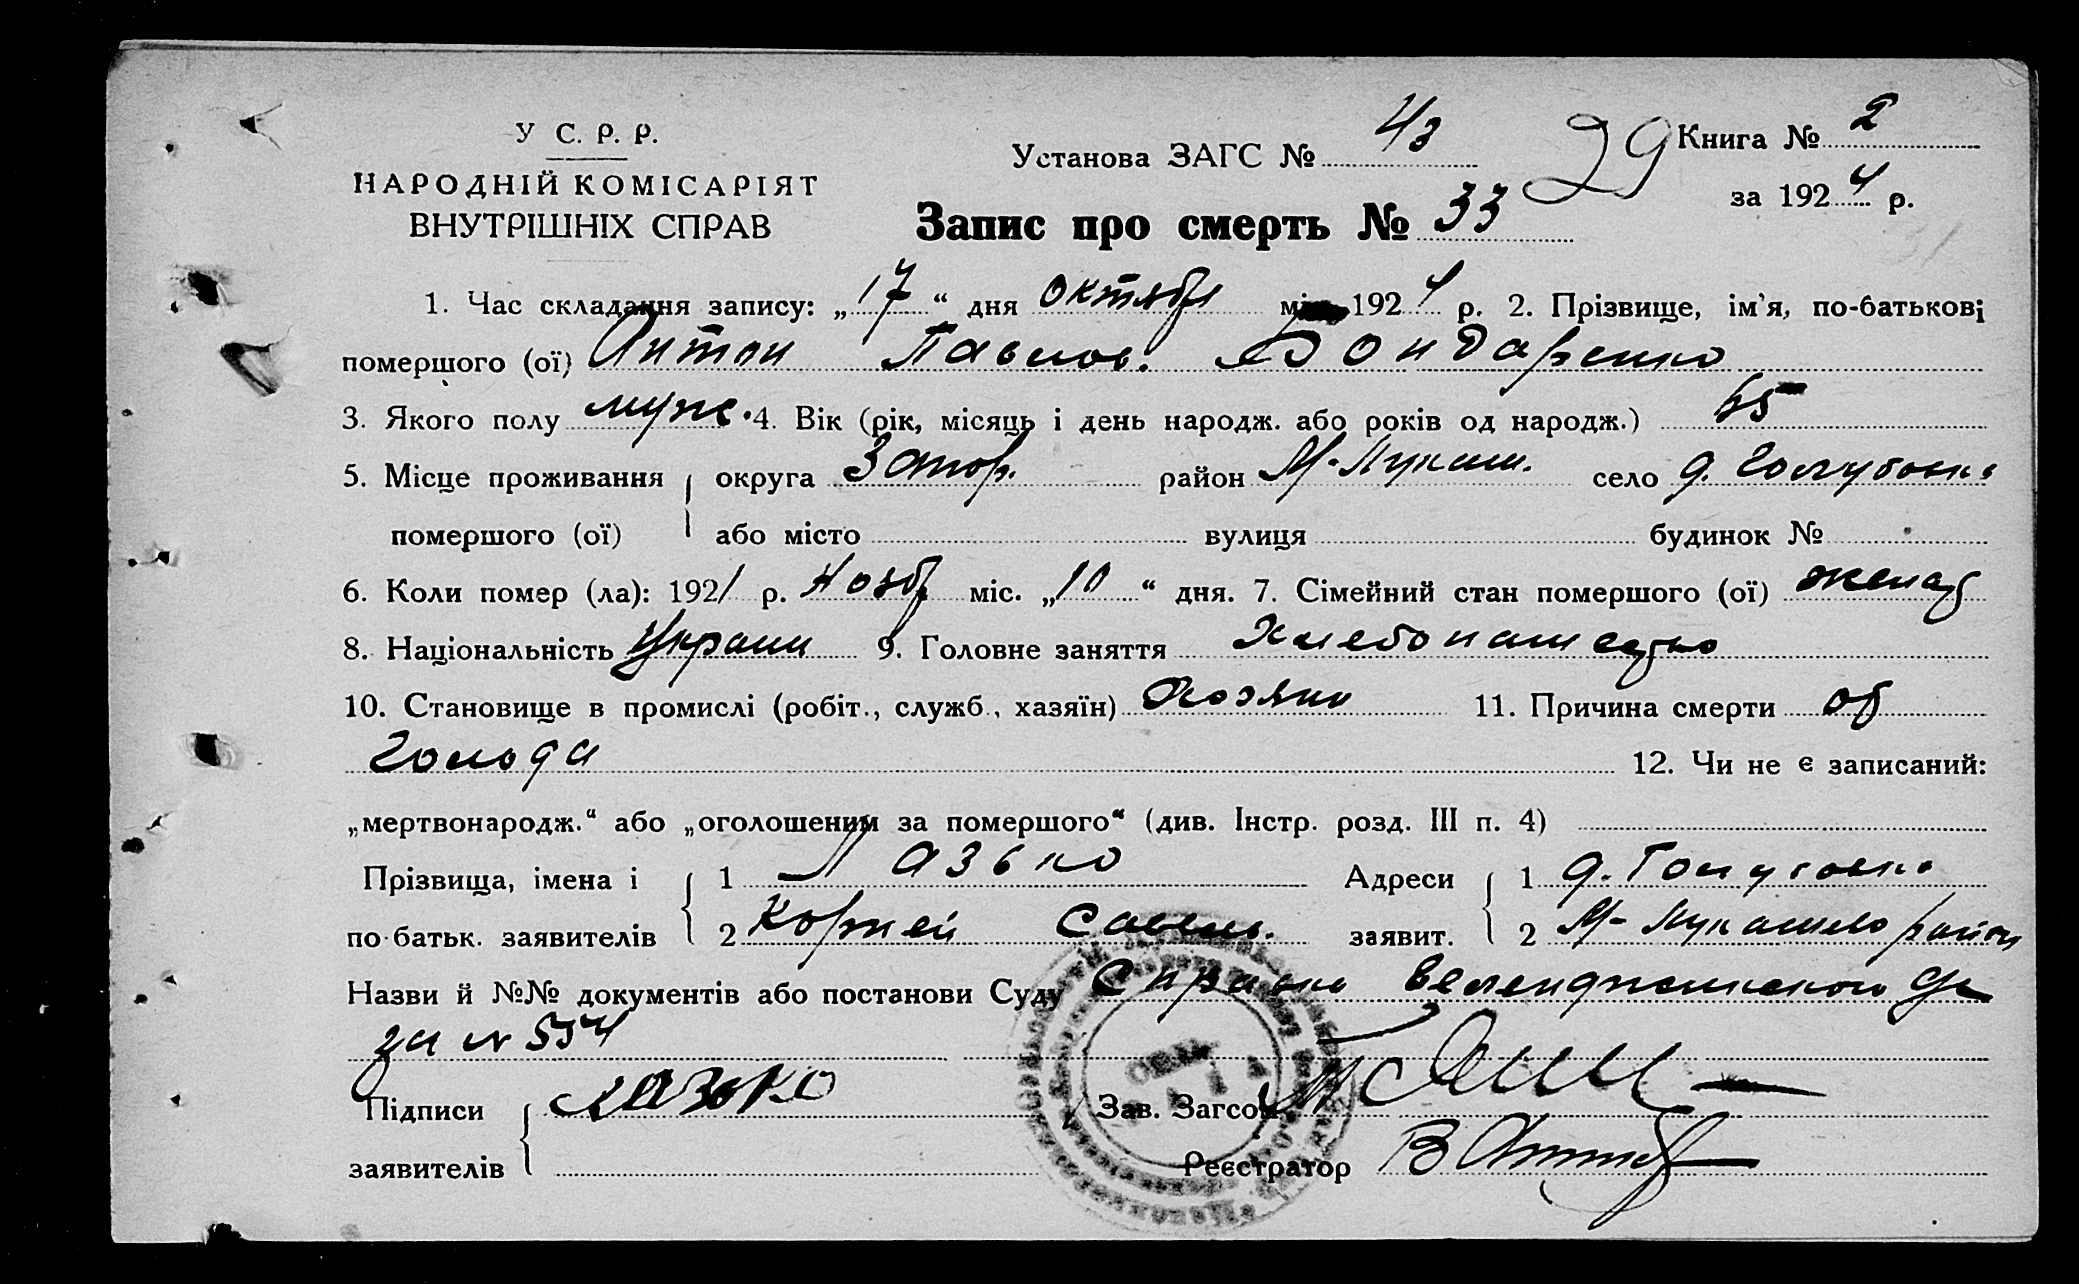 У С. Р. Р.
НАРОДНІЙ КОМІСАРІЯТ
ВНУТРІШНІХ СПРАВ
Установа ЗАГС № 43
29
Книга № 2
за 1924 р.
Запис про смерть № 33
1. Час складання запису: „17“ дня октября міс. 1924 р. 2. Прізвище, ім'я, по-батькові
помершого (ої) Антон Павлов. Бондаренко
3. Якого полу муж. 4. Вік (рік, місяць і день народж. або років од народж.) 65
5. Місце проживання округа Запор. район М-Лукаш. село д. Голубовка
помершого (ої) або місто вулиця будинок №
6. Коли помер (ла): 1921 р. Нояб. міс. „10“ дня. 7. Сімейний стан помершого (ої) женат
8. Національність Украин 9. Головне заняття Хлебопашество
10. Становище в промислі (робіт., служб., хазяїн) Хозяин 11. Причина смерти от
Голода 12. Чи не є записаний:
„мертвонародж.“ або „оголошеним за помершого“ (див. Інстр. розд. III п. 4)
Прізвища, імена і 1 Лазько Адреси 1 д. Голубовка
по батьк. заявителів 2 Корней Савел. заявит. 2 М-Лукашево район
Назви й №№ документів або постанови Суду Справка
за № 554
Підписи Лазько Зав. Загсом
заявителів Реєстратор